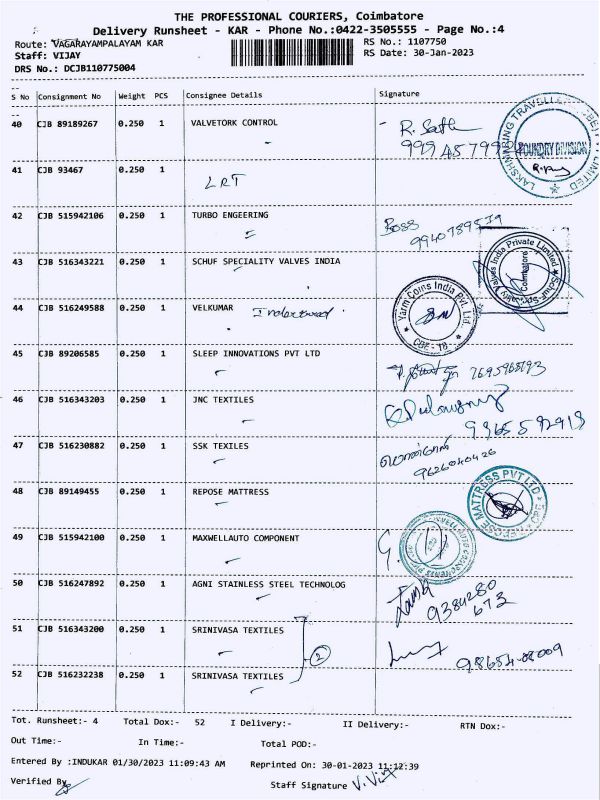 THE PROFESSIONAL COURIERS, Coimbatore
Delivery Runsheet - KAR - Phone No.:0422-3505555 - Page No.:4
Route: VAGARAYAMPALAYAM KAR
RS No.: 1107750
Staff: VIJAY
RS Date: 30-Jan-2023
DRS No.: DCJB110775004
S No Consignment No Weight PCS Consignee Details Signature
40 CJB 89189267 0.250 1 VALVETORK CONTROL
FOUNDRY DIVISION
41 CJB 93467 0.250 1
LRT
42 CJB 515942106 0.250 1 TURBO ENGEERING Boss
43 CJB 516343221 0.250 1 SCHUF SPECIALITY VALVES INDIA
Schuf Speciality Valves India Private Limited
Coimbatore
44 CJB 516249588 0.250 1 VELKUMAR
Yarm Coins India Pvt. Ltd.
CBE - 18
45 CJB 89206585 0.250 1 SLEEP INNOVATIONS PVT LTD
7695968793
46 CJB 516343203 0.250 1 JNC TEXTILES
47 CJB 516230882 0.250 1 SSK TEXILES
9626040426
48 CJB 89149455 0.250 1 REPOSE MATTRESS
REPOSE MATTRESS PVT LTD
49 CJB 515942100 0.250 1 MAXWELLAUTO COMPONENT
50 CJB 516247892 0.250 1 AGNI STAINLESS STEEL TECHNOLOG
9384280
673
51 CJB 516343200 0.250 1 SRINIVASA TEXTILES
2
52 CJB 516232238 0.250 1 SRINIVASA TEXTILES
Tot. Runsheet:- 4 Total Dox:- 52 I Delivery:- II Delivery:- RTN Dox:-
Out Time:- In Time:- Total POD:-
Entered By :INDUKAR 01/30/2023 11:09:43 AM Reprinted On: 30-01-2023 11:12:39
Verified By
Staff Signature